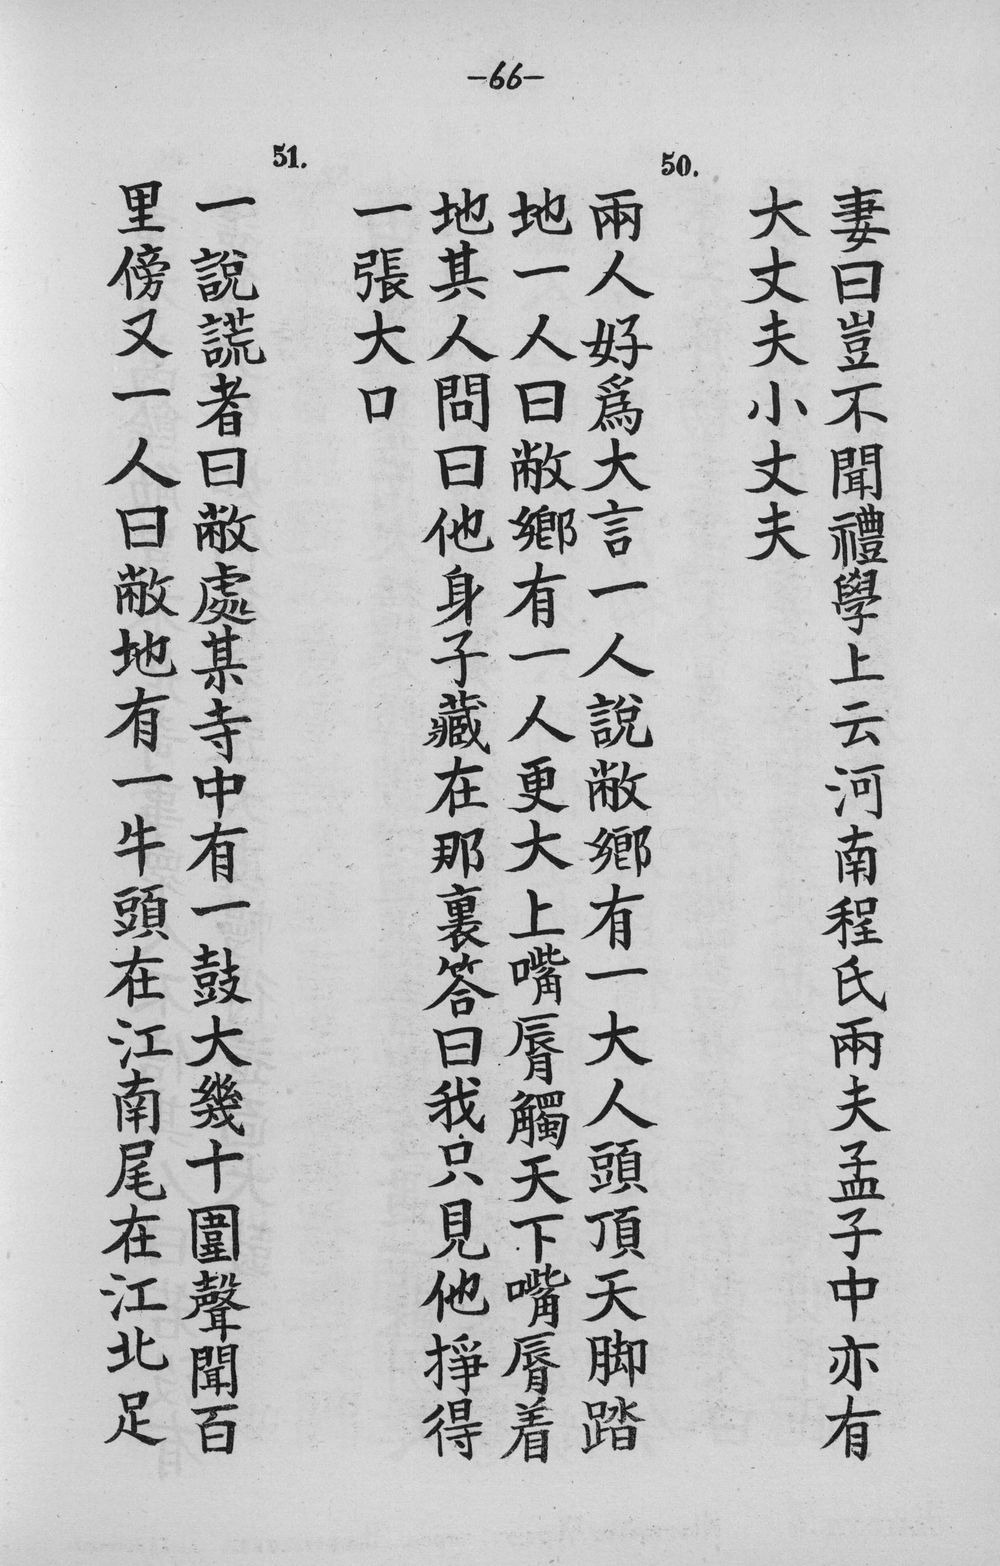 -66-
妻曰豈不聞禮學上云河南程氏兩夫孟子中亦有
大丈夫小丈夫
50.
兩人好爲大言一人說敝鄉有一大人頭頂天脚踏
地一人曰敝鄉有一人更大上嘴脣觸天下嘴脣着
地其人問曰他身子藏在那裏答曰我只見他掙得
一張大口
51.
一說謊者曰敝處某寺中有一鼓大幾十圍聲聞百
里傍又一人曰敝地有一牛頭在江南尾在江北足